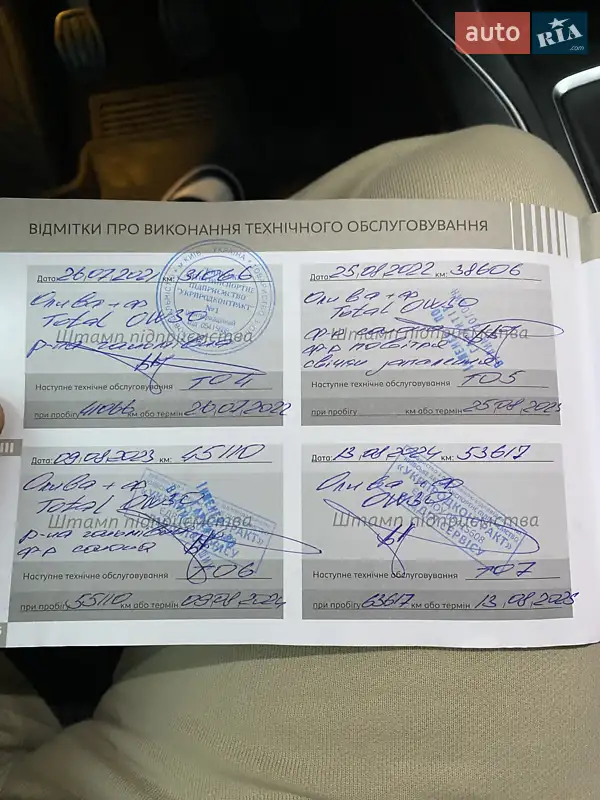 auto RIA.com
ВІДМІТКИ ПРО ВИКОНАННЯ ТЕХНІЧНОГО ОБСЛУГОВУВАННЯ
Дата: 26.07.2021 км: 31066
Олива + ф
Total 0W30
р-на
Штамп підприємства
Наступне технічне обслуговування ТО 4
при пробігу 41066 км або термін 26.07.2022
Дата: 25.08.2022 км: 38606
Олива + ф
Total 0W30
ф-р
Штамп підприємства
ф-р повітря
свічки
Наступне технічне обслуговування ТО5
при пробігу км або термін 25.08.2023
Дата: 09.08.2023 км: 45110
Олива + ф
Total 0W30
Штамп підприємства
р-на гальмівна
ф-р салона
Наступне технічне обслуговування ТО6
при пробігу 55110 км або термін 09.08.2024
Дата: 13.08.2024 км: 53617
Олива + ф
0W30
«УКРПРОДКОНТРАКТ»
Штамп підприємства
Наступне технічне обслуговування ТО7
при пробігу 63617 км або термін 13.08.2025